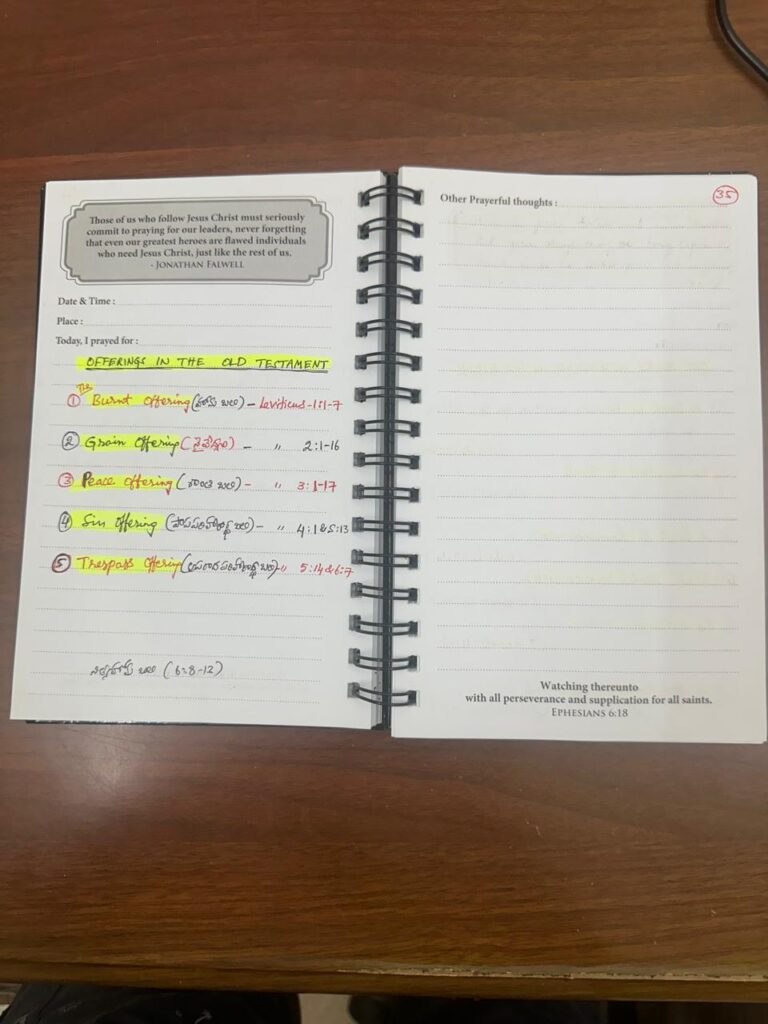 Those of us who follow Jesus Christ must seriously
commit to praying for our leaders, never forgetting
that even our greatest heroes are flawed individuals
who need Jesus Christ, just like the rest of us.
- JONATHAN FALWELL
Date & Time :
Place :
Today, I prayed for :
OFFERINGS IN THE OLD TESTAMENT
① The Burnt Offering (హోమ బలి) - Leviticus - 1:1-7
② Grain Offering (నైవేద్యం) - " 2:1-16
③ Peace Offering (శాంతి బలి) - " 3:1-17
④ Sin Offering (పాపపరిహారార్థ బలి) - " 4:1 & 5:13
⑤ Trespass Offering (అపరాధపరిహారార్థ బలి) - " 5:14 & 6:7
నిత్యహోమ బలి (6:8-12)
Other Prayerful thoughts :
35
Watching thereunto
with all perseverance and supplication for all saints.
EPHESIANS 6:18